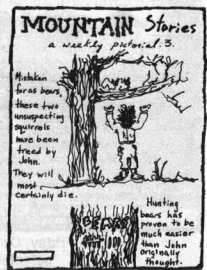 MOUNTAIN Stories
a weekly pictorial. 3.
Mistaken
for as bears,
these two
unsuspecting
squirrels
have been
treed by
John.
They will
most
certainly die.
Hunting
bears has
proven to be
much easier
than John
originally
thought.